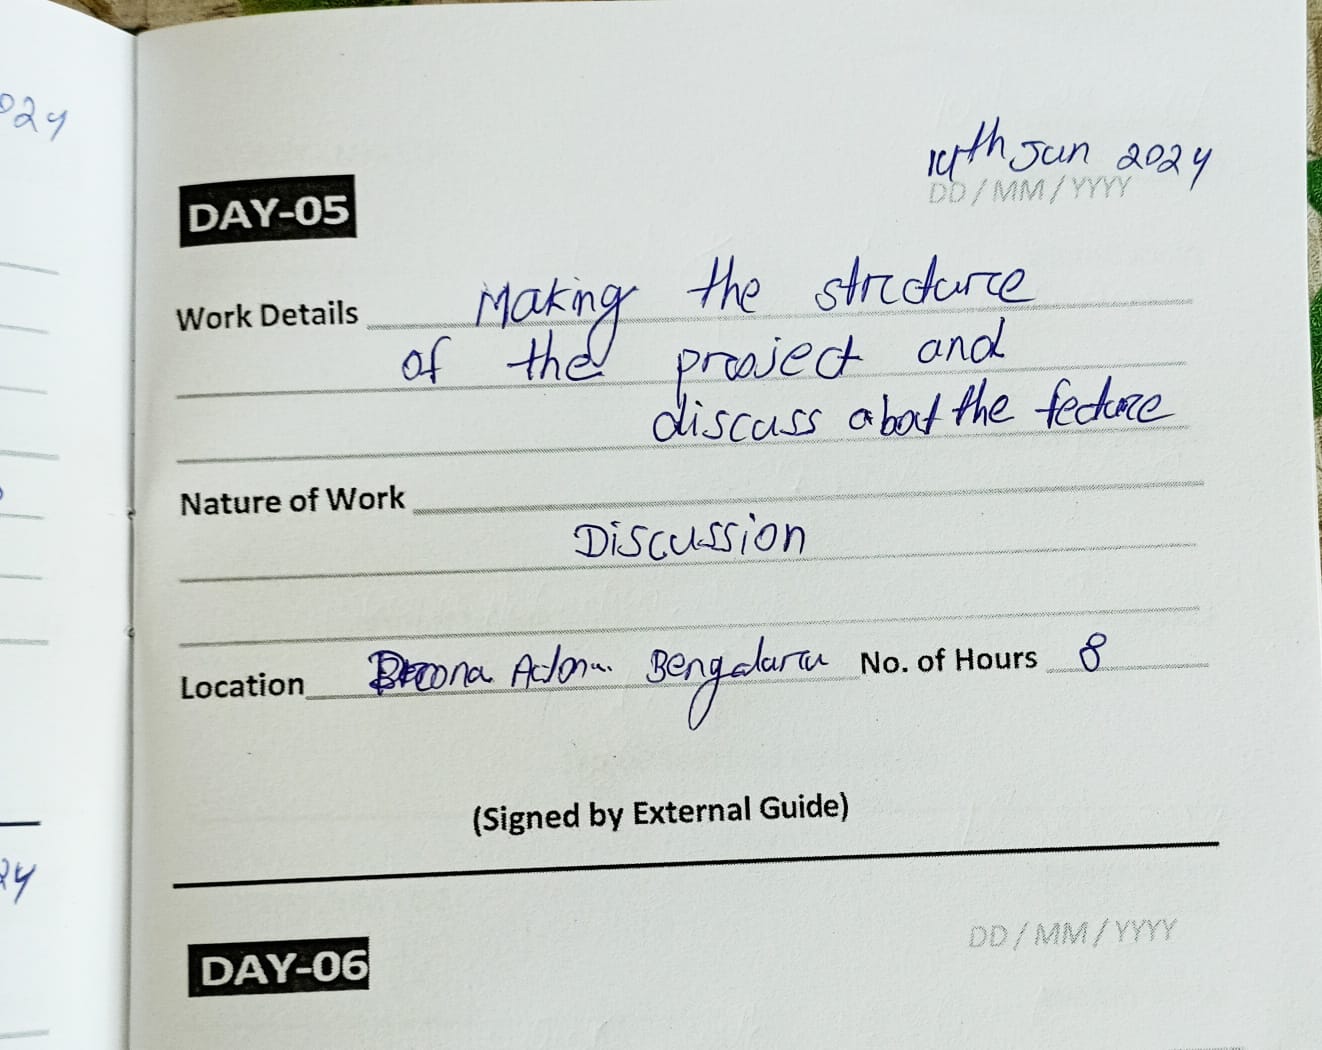 024
14th Jun 2024
DD / MM / YYYY
DAY-05
Work Details Making the structure
of the project and
discuss about the fecture
Nature of Work
Discussion
Location Bengaluru No. of Hours 8
(Signed by External Guide)
24
DD / MM / YYYY
DAY-06